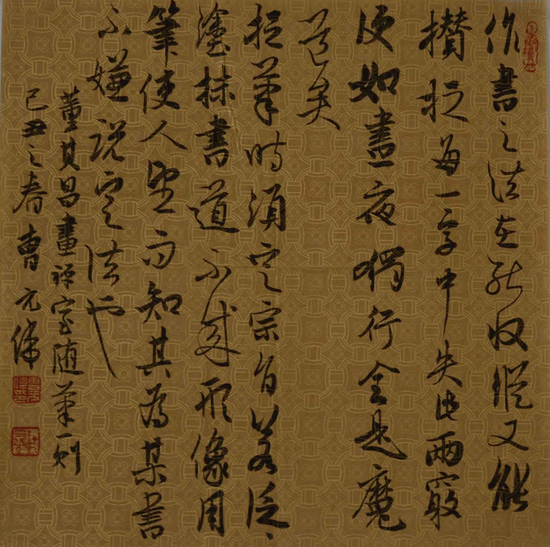 作書之法在能收縱又能
攢捉每一字中失此兩竅
便如晝夜獨行全是魔
道矣
捉筆時須定宗旨若泛泛
塗抹書道不成形像用
筆使人望而知其為某書
不嫌說定法也
董其昌畫禪室随筆一則
己丑之春曹元偉